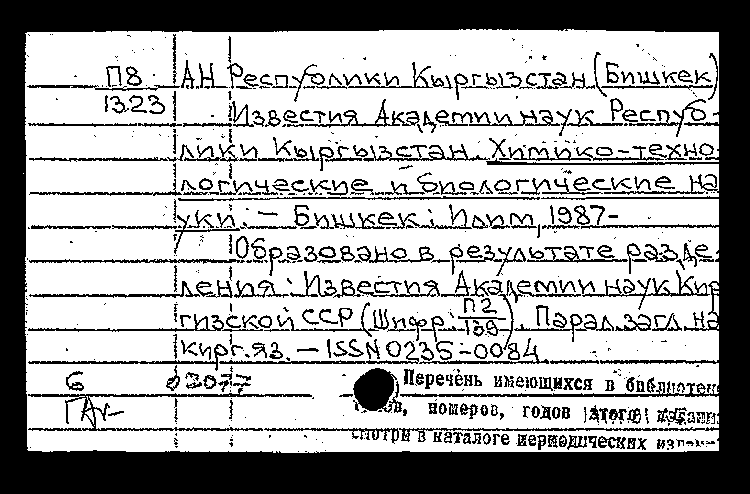 П8 АН Республики Кыргызстан (Бишкек)
1323 Известия Академии наук Респуб-
лики Кыргызстан. Химико-техно-
логические и биологические на
уки. — Бишкек: Илим, 1987-
Образовано в результате разде-
ления: Известия Академии наук Кир
гизской ССР (Шифр: П2/139). Парал. загл. на
кирг. яз. — ISSN 0235-0084
6 03077 Перечень имеющихся в библиотеке
номеров, годов этого издани
смотри в каталоге периодических